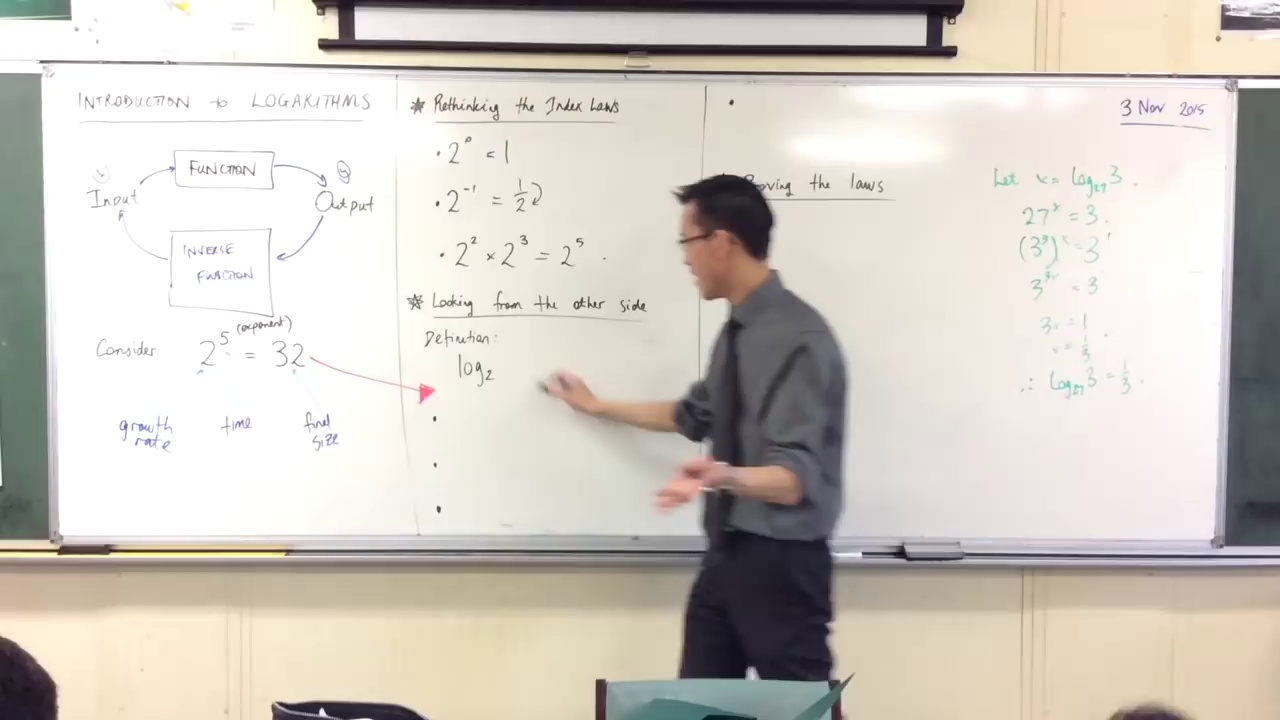 INTRODUCTION to LOGARITHMS
FUNCTION
Input
Output
INVERSE
FUNCTION
(exponent)
Consider 2⁵ = 32
growth rate
time
final size
* Rethinking the Index Laws
• 2⁰ = 1
• 2⁻¹ = 1/2
• 2² × 2³ = 2⁵.
* Looking from the other side
Definition:
log₂
•
•
•
•
Proving the laws
3 Nov 2015
Let x = log₂₇3.
27ˣ = 3.
(3³)ˣ = 3¹
3³ˣ = 3¹
3x = 1
x = 1/3.
∴ log₂₇3 = 1/3.